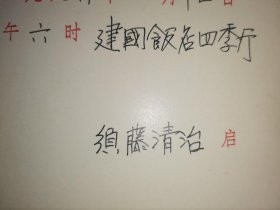 午六时 建國飯店四季厅
須藤清治 启